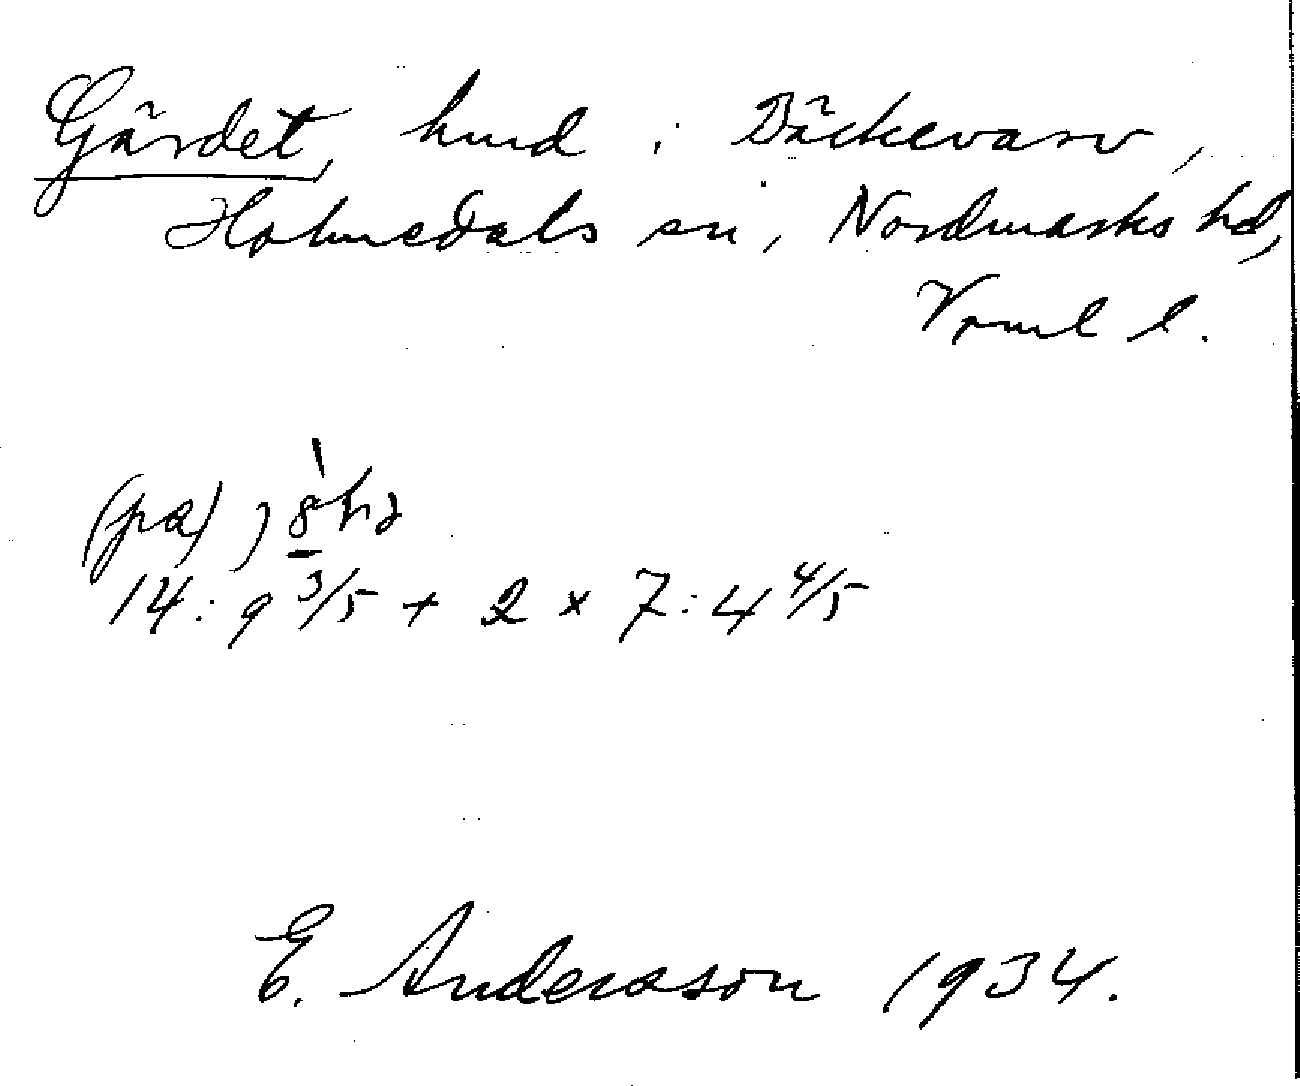 Gärdet, hmd i Bäckevarv,
Holmedals sn, Nordmarks hd,
Vrml l.
(pa)
14:9 3/5 + 2 × 7:4 4/5
E. Andersson 1934.